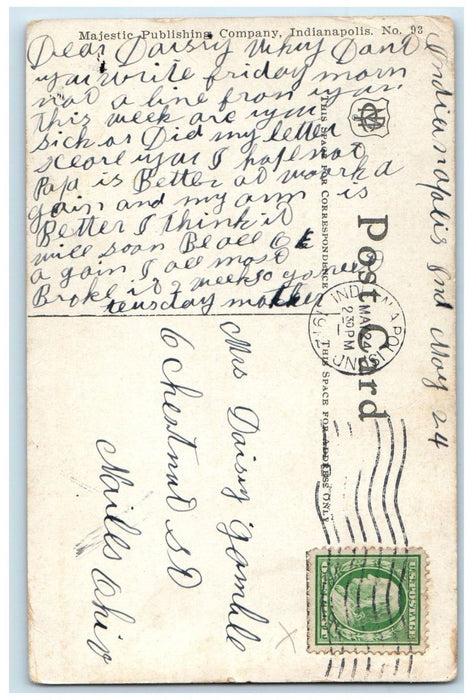 Majestic Publishing Company, Indianapolis. No. 93
Indianapolis Ind May 24
Dear Daisry Why Dont
you write friday morn
not a line from you
this week are you
sick or Did my letter
sceare you I hope not
Papa is Better at work a
gain and my arm is
Better I think it
will soon Be all OK
a gain I all most
Broke it 2 weeks ago
teusday mother
THIS SPACE FOR CORRESPONDENCE
Post Card
THIS SPACE FOR ADDRESS ONLY
INDIANAPOLIS, IND.
MAY 24
2 30 PM
1912
Mrs Daisy Gamble
6 Chestnut St
Ohio
U.S. POSTAGE